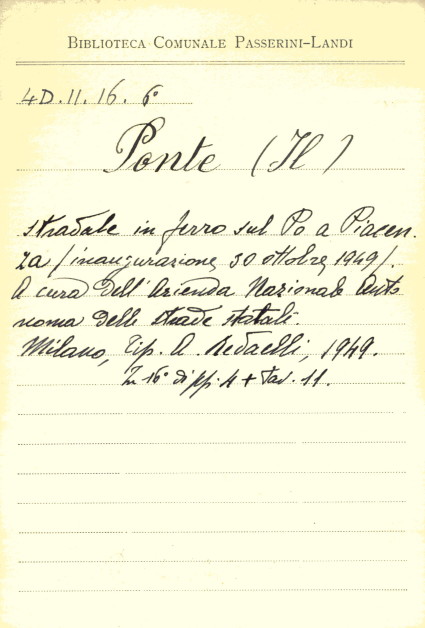 BIBLIOTECA COMUNALE PASSERINI-LANDI
4D.11.16.6°
Ponte (Il)
stradale in ferro sul Po a Piacen.
za /inaugurazione, 30 ottobre 1949/.
A cura dell'Azienda Nazionale Auto
noma delle strade statali.
Milano, Tip. A. Redaelli, 1949.
In 16° di pp. 4 + tav. 11.